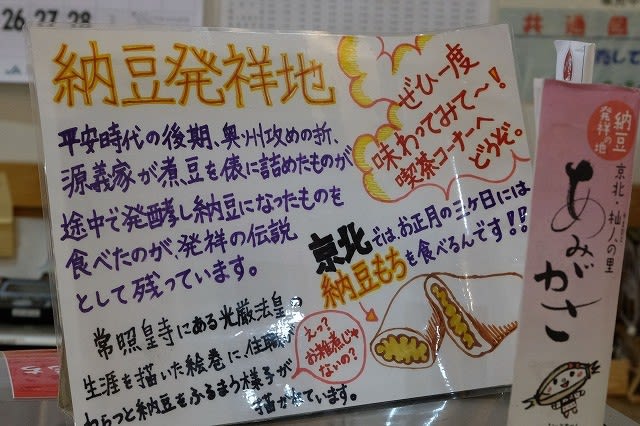 26 27・28
共通
納豆発祥地
平安時代の後期、奥州攻めの折、
源義家が煮豆を俵に詰めたものが
途中で発酵し納豆になったものを
食べたのが、発祥の伝説
として残っています。
ぜひ一度
味わってみて〜!
喫茶コーナーへ
どうぞ。
京北では、お正月の三ヶ日には
納豆もちを食べるんです!!
えっ?
お雑煮じゃ
ないの?
常照皇寺にある光厳法皇の
生涯を描いた絵巻に、住職が
わらつと納豆をふるまう様子が
描かれています。
納豆
発祥の地
京北・拙人の里
あみがさ